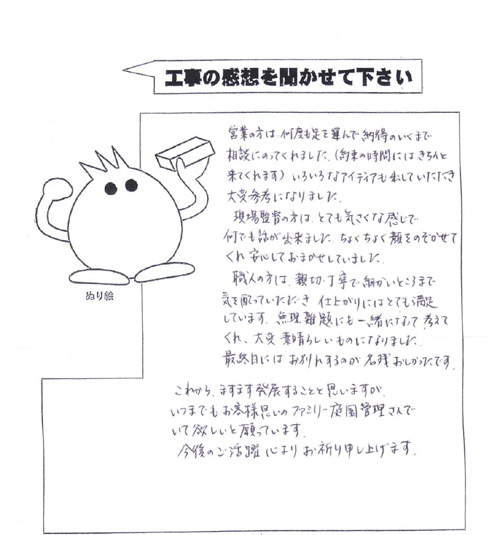 工事の感想を聞かせて下さい
営業の方は、何度も足を運んで納得のいくまで
相談にのってくれました。(約束の時間にはきちんと
来てくれます) いろいろなアイディアも出していただき
大変参考になりました。
現場監督の方は、とても気さくな感じで
何でも話が出来ました。ちょくちょく顔をのぞかせて
くれ安心しておまかせしていました。
職人の方は、親切・丁寧で細かいところまで
気を配っていただき 仕上がりにはとても満足
しています。無理難題にも一緒になって考えて
くれ、大変素晴らしいものになりました。
最終日にはお別れするのが名残おしかったです。
これから、ますます発展することと思いますが、
いつまでもお客様思いのファミリー庭園管理さんで
いて欲しいと願っています。
今後のご活躍心よりお祈り申し上げます。
ぬり絵